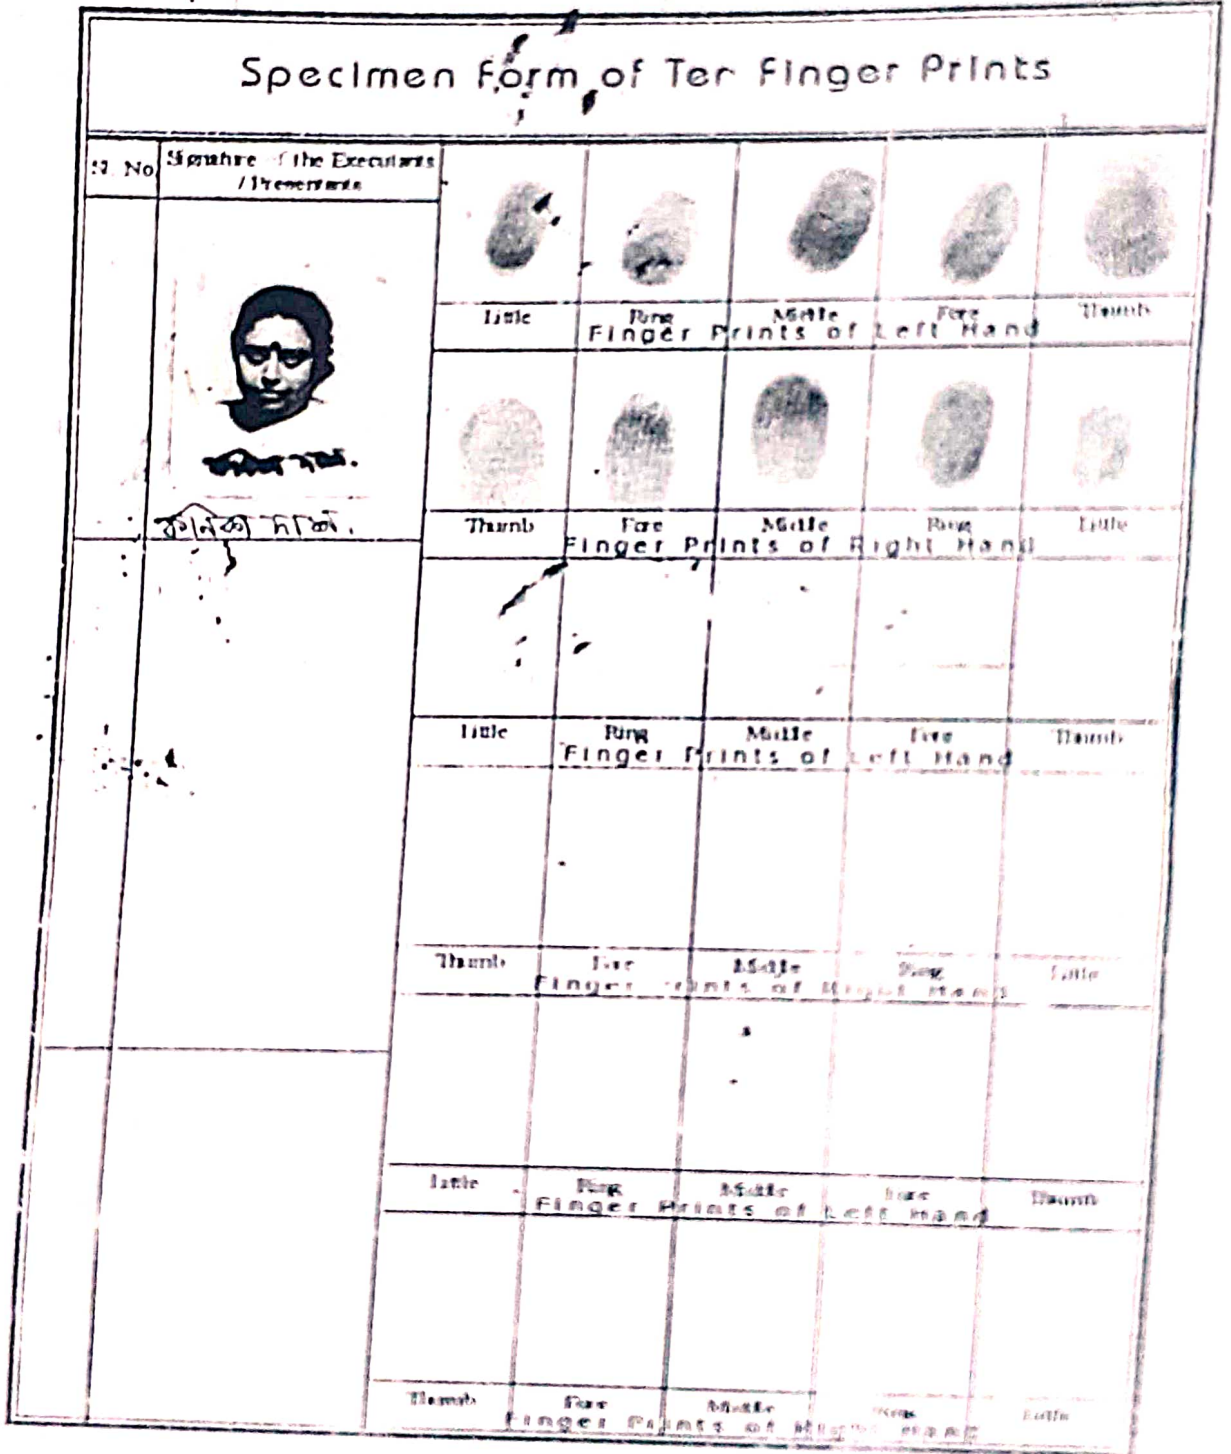 Specimen Form of Ter Finger Prints
Sl. No.
Signature of the Executants
/ Presentants
Little Ring Middle Fore Thumb
Finger Prints of Left Hand
কনিকা দাস.
Thumb Fore Middle Ring Little
Finger Prints of Right Hand
Little Ring Middle Fore Thumb
Finger Prints of Left Hand
Thumb Fore Middle Ring Little
Finger Prints of Right Hand
Little Ring Middle Fore Thumb
Finger Prints of Left Hand
Thumb Fore Middle Ring Little
Finger Prints of Right Hand